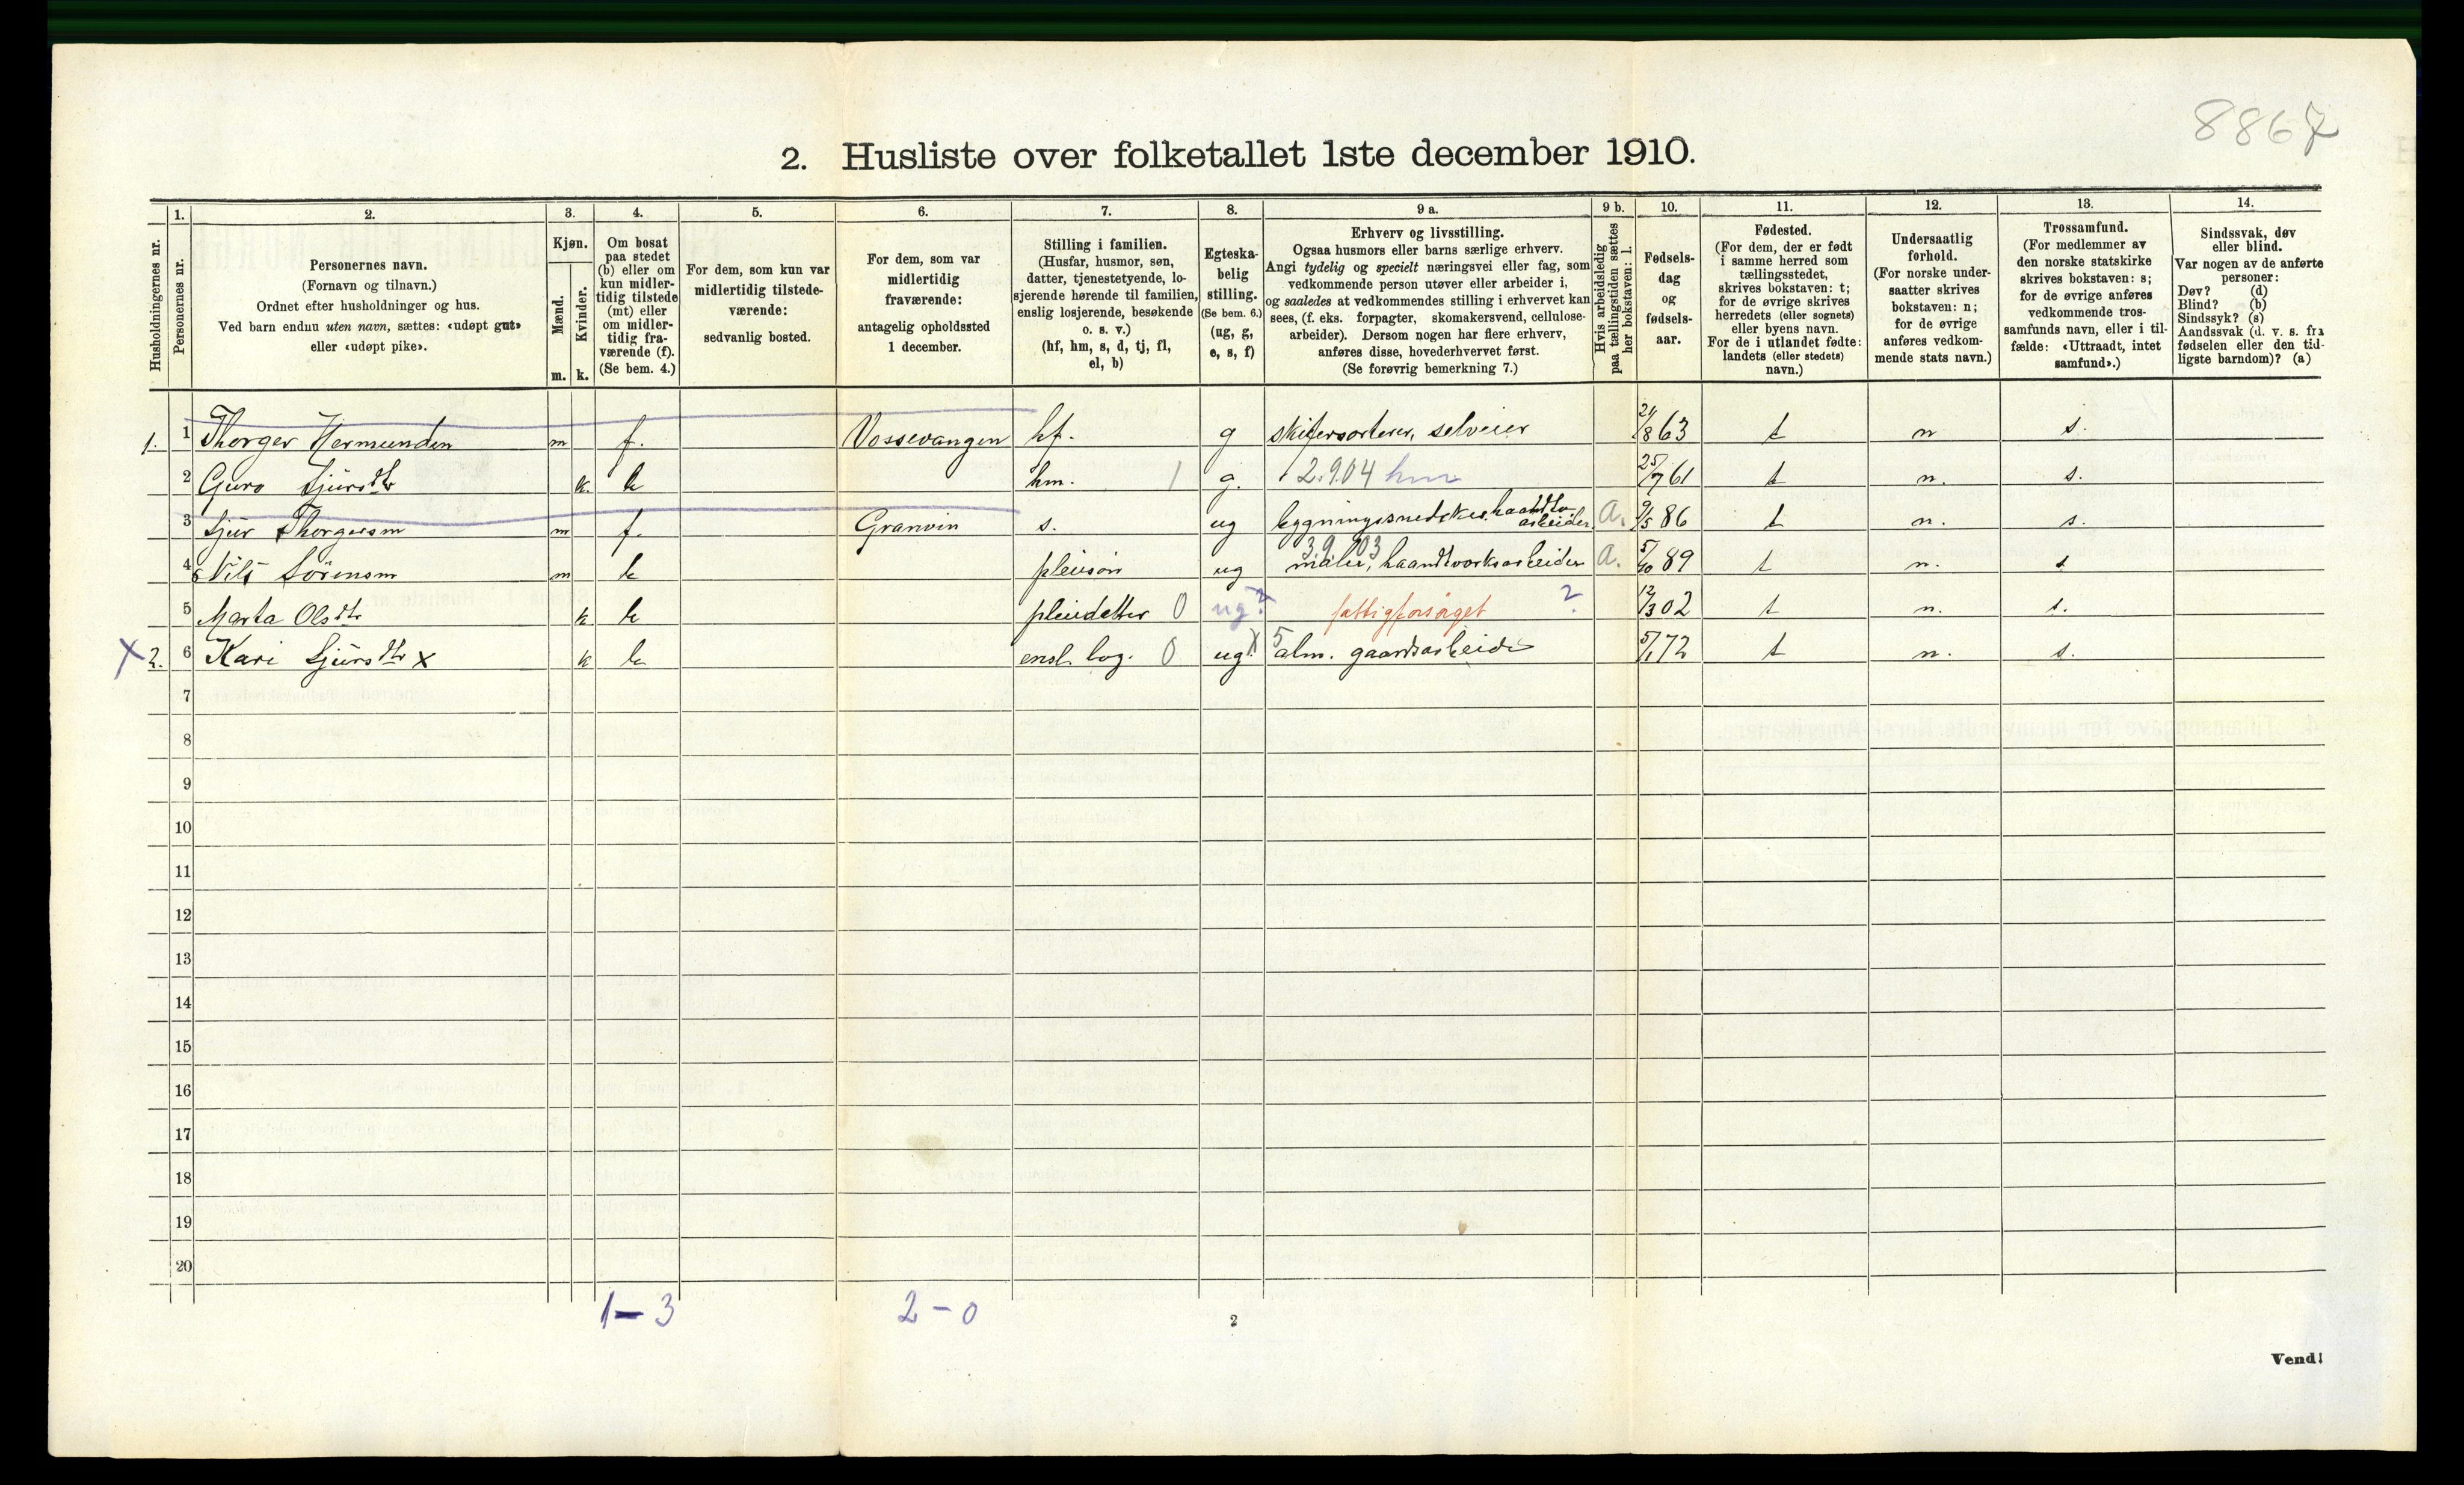 8867
2. Husliste over folketallet 1ste december 1910.
Husholdningernes nr.
1.
Personernes nr.
2.
Personernes navn.
(Fornavn og tilnavn.)
Ordnet efter husholdninger og hus.
Ved barn endnu uten navn, sættes: «udøpt gut»
eller «udøpt pike».
3.
Kjøn.
Mænd.
Kvinder.
m. k.
4.
Om bosat
paa stedet
(b) eller om
kun midler-
tidig tilstede
(mt) eller
om midler-
tidig fra-
værende (f).
(Se bem. 4.)
5.
For dem, som kun var
midlertidig tilstede-
værende:
sedvanlig bosted.
6.
For dem, som var
midlertidig
fraværende:
antagelig opholdssted
1 december.
7.
Stilling i familien.
(Husfar, husmor, søn,
datter, tjenestetyende, lo-
sjerende hørende til familien,
enslig losjerende, besøkende
o. s. v.)
(hf, hm, s, d, tj, fl,
el, b)
8.
Egteska-
belig
stilling.
(Se bem. 6.)
(ug, g,
e, s, f)
9 a.
Erhverv og livsstilling.
Ogsaa husmors eller barns særlige erhverv.
Angi tydelig og specielt næringsvei eller fag, som
vedkommende person utøver eller arbeider i,
og saaledes at vedkommendes stilling i erhvervet kan
sees, (f. eks. forpagter, skomakersvend, cellulose-
arbeider). Dersom nogen har flere erhverv,
anføres disse, hovederhvervet først.
(Se forøvrig bemerkning 7.)
9 b.
Hvis arbeidsledig
paa tællingstiden sættes
her bokstaven: l.
10.
Fødsels-
dag
og
fødsels-
aar.
11.
Fødested.
(For dem, der er født
i samme herred som
tællingsstedet,
skrives bokstaven: t;
for de øvrige skrives
herredets (eller sognets)
eller byens navn.
For de i utlandet fødte:
landets (eller stedets)
navn.)
12.
Undersaatlig
forhold.
(For norske under-
saatter skrives
bokstaven: n;
for de øvrige
anføres vedkom-
mende stats navn.)
13.
Trossamfund.
(For medlemmer av
den norske statskirke
skrives bokstaven: s;
for de øvrige anføres
vedkommende tros-
samfunds navn, eller i til-
fælde: «Uttraadt, intet
samfund».)
14.
Sindssvak, døv
eller blind.
Var nogen av de anførte
personer:
Døv? (d)
Blind? (b)
Sindssyk? (s)
Aandssvak (d. v. s. fra
fødselen eller den tid-
ligste barndom)? (a)
1. 1 Thorger Hermunden m f. Vossevangen hf. g skifersorterer, selveier 21/8 63 t n s.
2 Guro Sjursdtr k. b hm. 1 g. 2.9.04 hm 25/7 61 t n. s.
3 Sjur Thorgersen m f. Granvin s. ug bygningssnedker, haandv. arbeider. a. 9/5 86 t n. s.
4 Nils Sörensen m b pleiesön ug 3.9.03 maler, haandverksarbeider a. 5/10 89 t n. s
5 Marta Olsdtr k b pleiedatter 0 ug? fattigforsörget ? 12/3 02 t n. s.
X 2. 6 Kari Sjursdtr x k b ensl. log. 0 ug. X 5 alm. gaardsarbeide 5/1 72 t n. s.
7
8
9
10
11
12
13
14
15
16
17
18
19
20
1-3 2-0
2
Vend!